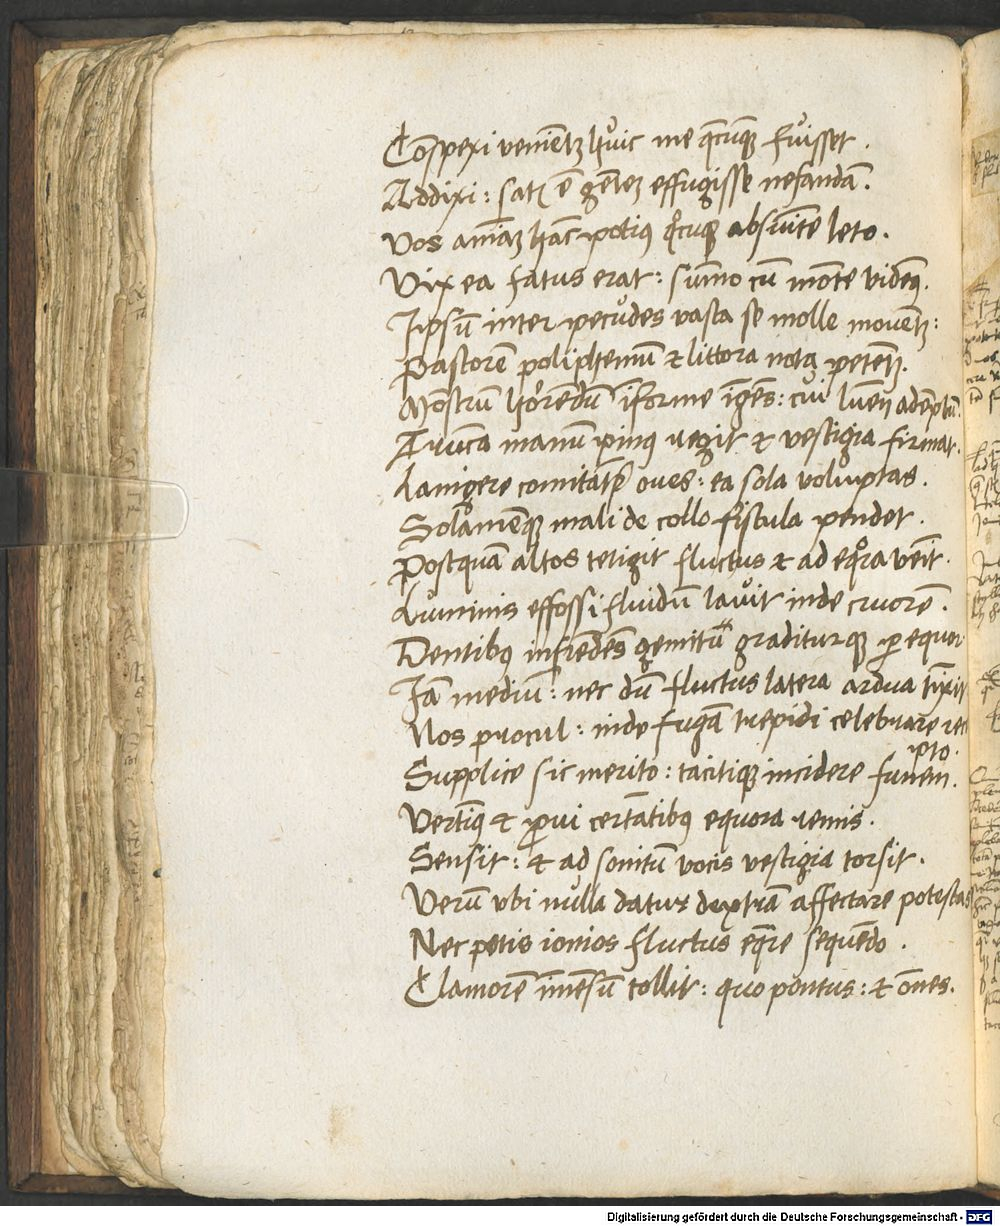 Cōspexi veniētȝ huic me q̄cūqȝ fuisset .
Addixi : satꝭ ē gētȩ effugisse nefandā .
Vos animāȝ hāc potiꝰ q̄cūqȝ absumite leto .
Vix ea fatus erat : sūmo cū mōte videmꝰ .
Ipsū inter pecudes vasta se mole mouētȝ :
Pastorē poliphemū & littora nota petētȝ .
Mōstrū horrēdū īforme īgēs : cui lumē adēptū .
Trūca manū pinꝰ regit & vestigia firmat .
Lanigere comitātꝭ oues : ea sola voluptas .
Solāmēqȝ mali de collo fistula pendet .
Postquā altos tetigit fluctus & ad eq̊ra venit .
Luminis effossi fluidū lauit inde cruorē .
Dentibꝰ infrēdēs gemitū graditurqȝ ꝑ equor
Iā mediū : nec dū fluctus latera ardua tīxit
Nos procul : inde fugā trepidi celebrare rec
pto .
Supplice sic merito : tacitiqȝ incidere funem .
Vertimꝰ & ꝓni certātibꝰ equora remis .
Sensit : & ad sonitū vocis vestigia torsit .
Verū vbi nulla datur dextrā affectare potestas
Nec potis ionios fluctus eq̄re sequēdo .
Clamorē īmēsū tollit : quo pontus : & ōnes .
Digitalisierung gefördert durch die Deutsche Forschungsgemeinschaft - DFG